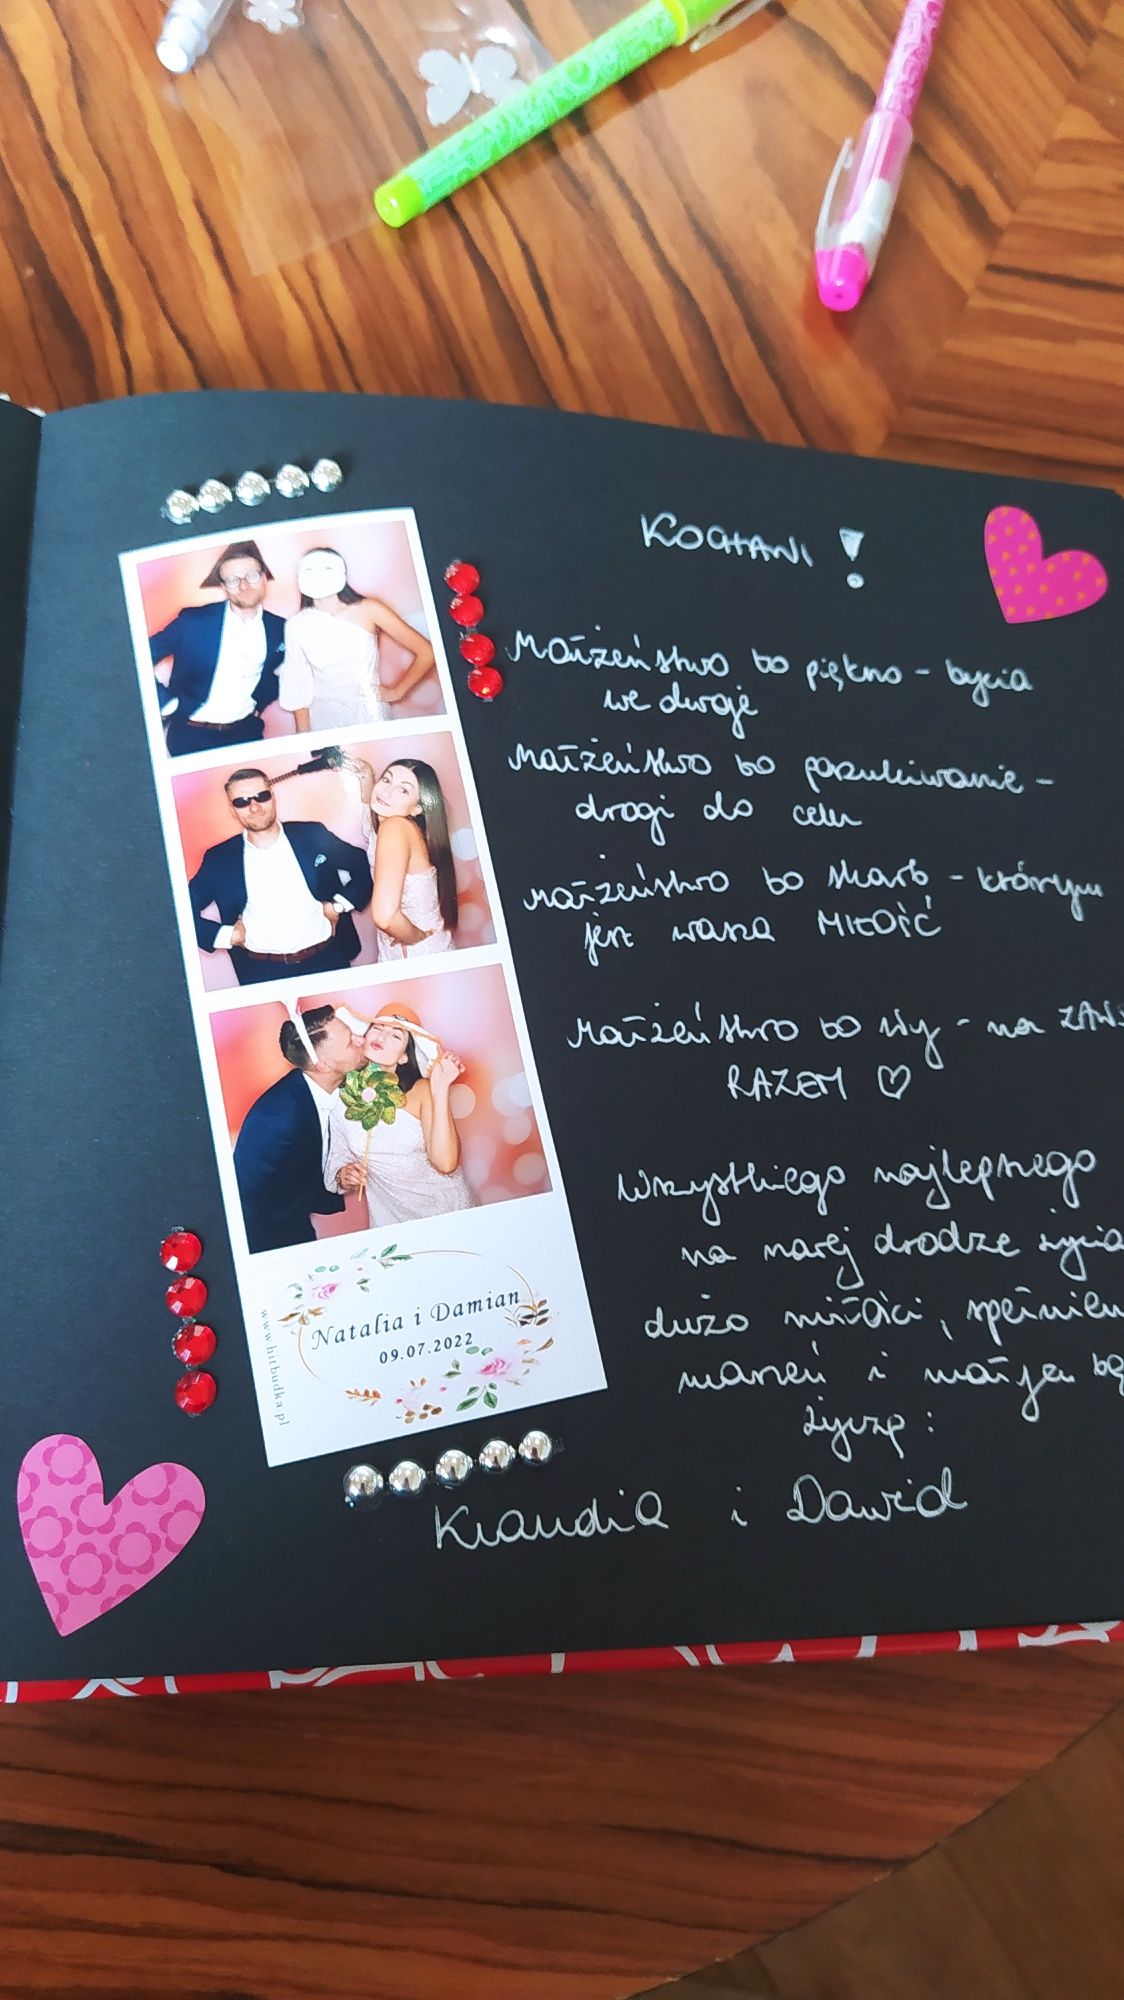 KOCHANI!
Małżeństwo to piękno - bycia
we dwoje
Małżeństwo to poszukiwanie -
drogi do celu
Małżeństwo to skarb - którym
jest wasza MIŁOŚĆ
Małżeństwo to wy - na ZAWS
RAZEM ♡
Wszystkiego najlepszego
na nowej drodze życia
dużo miłości, spełnien
marzeń i
życzą:
Klaudia i Dawid
Natalia i Damian
09.07.2022
www.hitbudka.pl